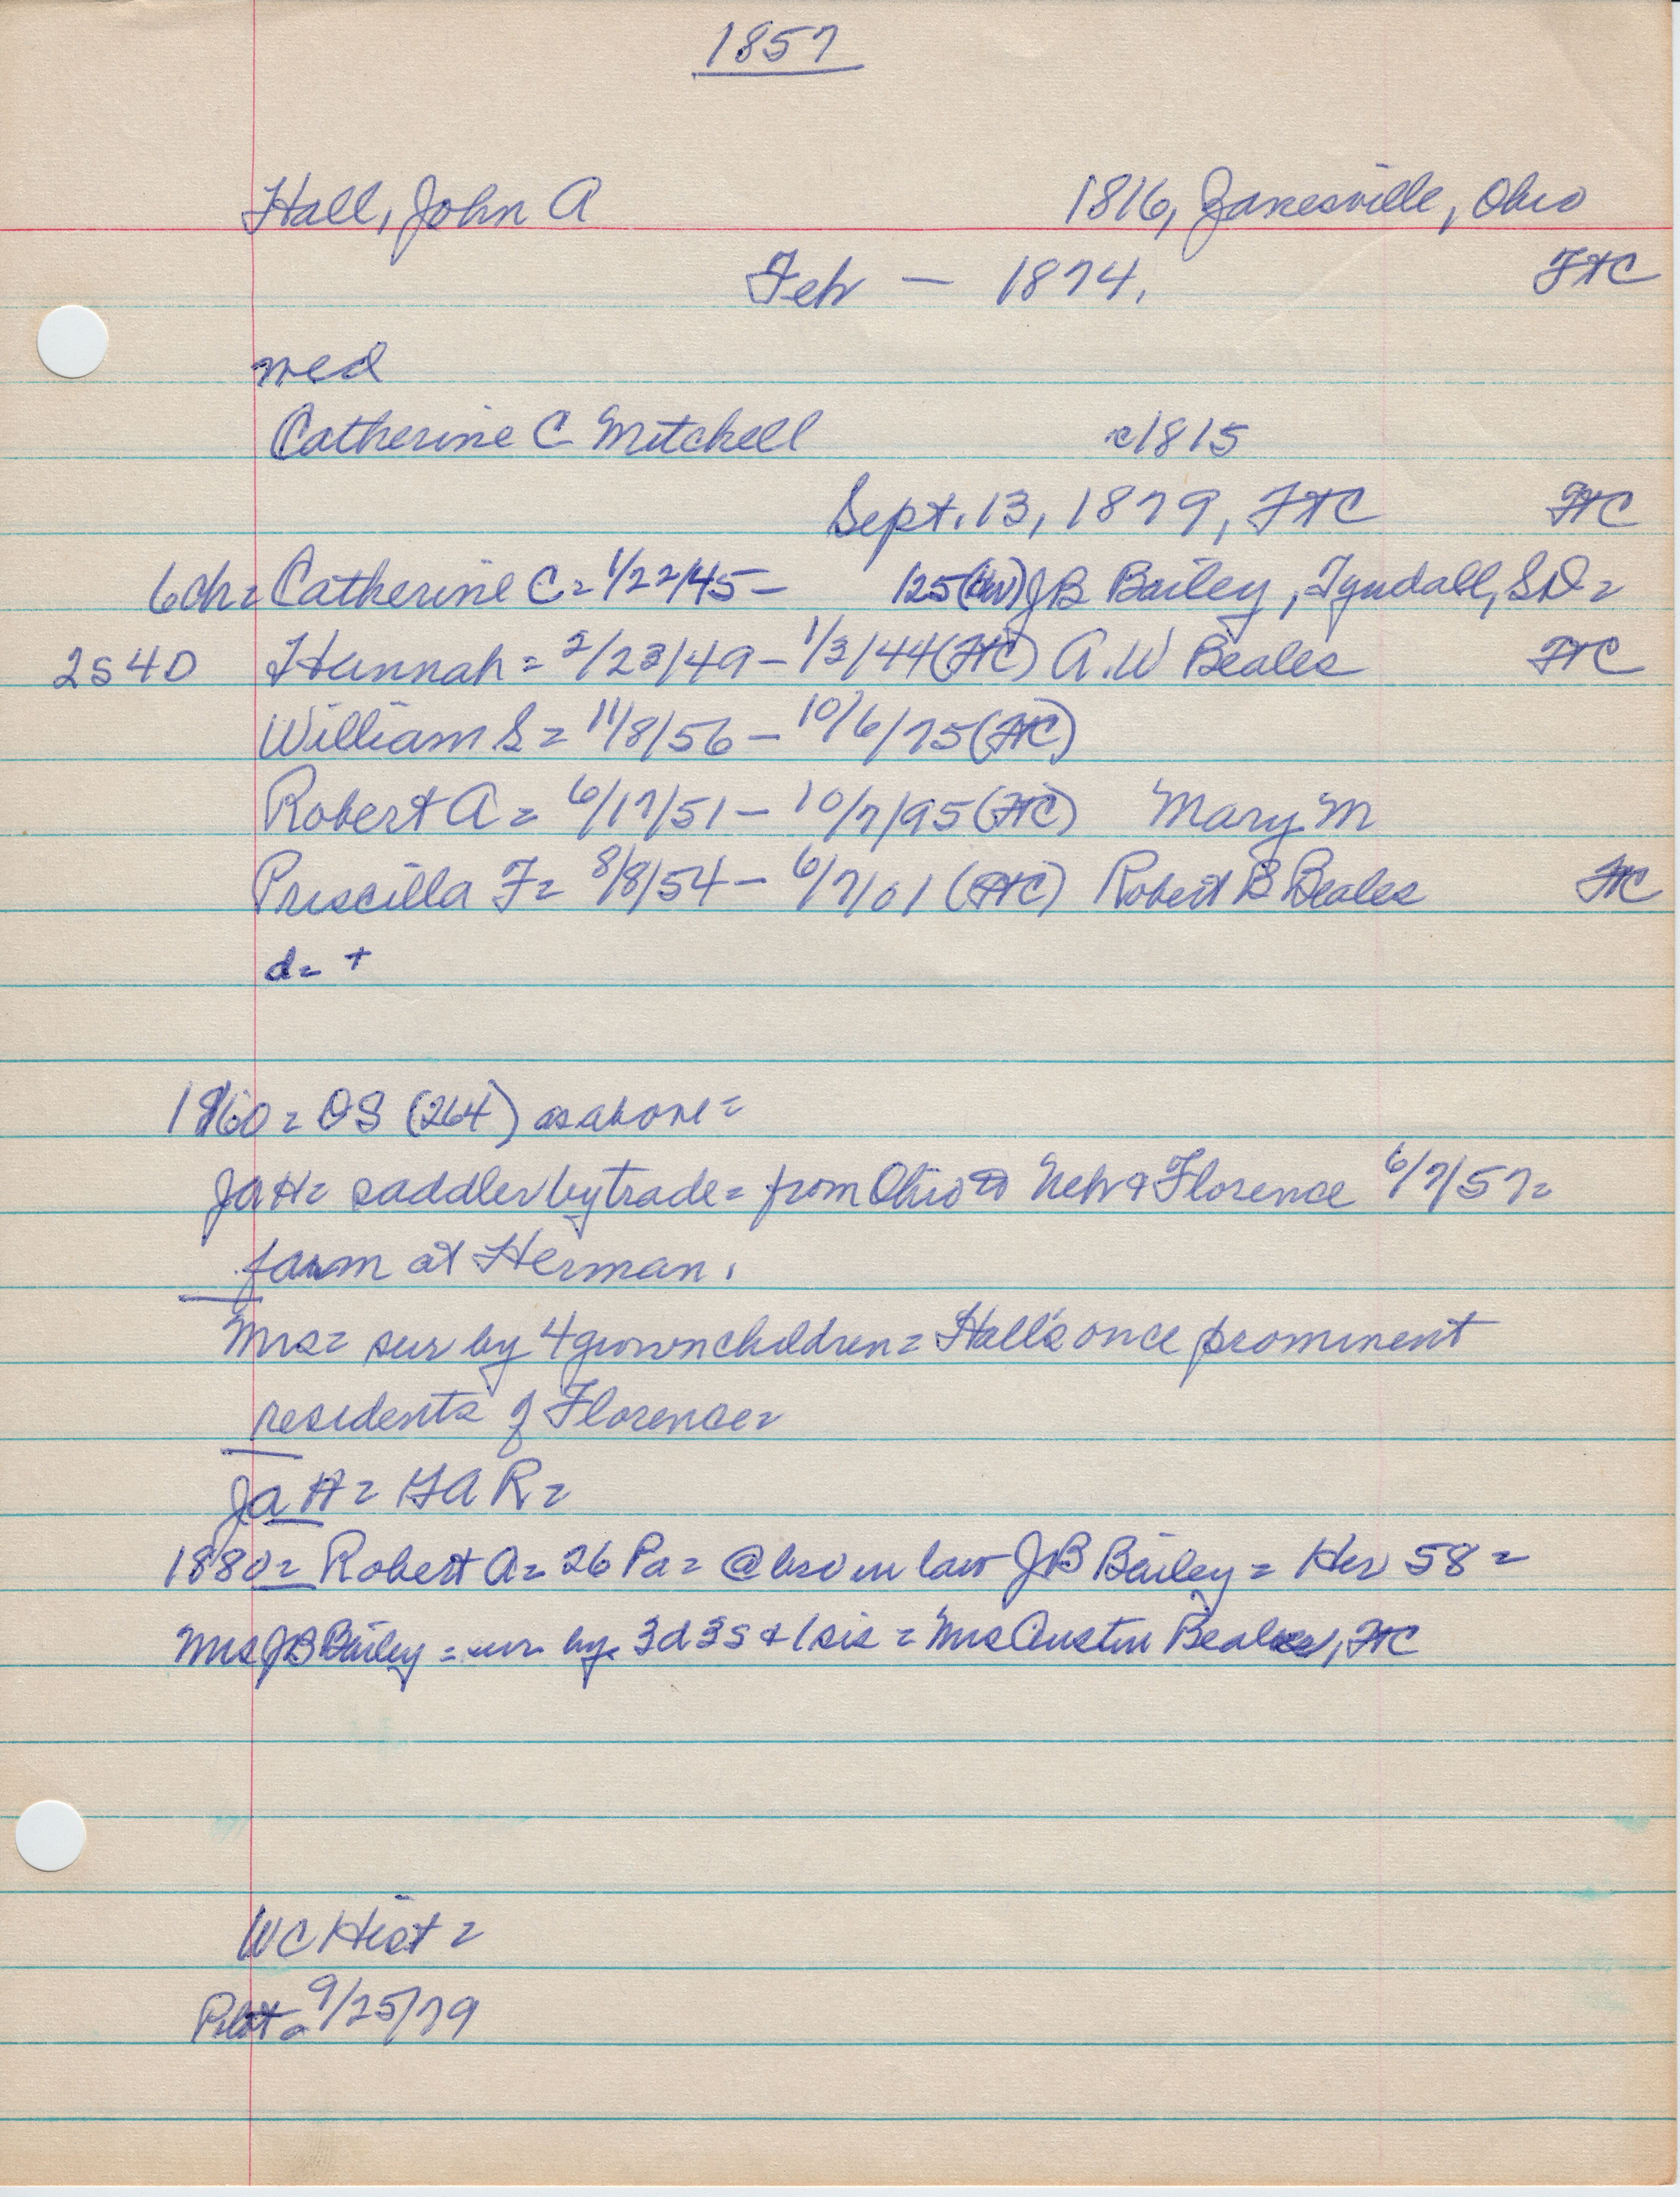 1857
Hall, John A 1816, Zanesville, Ohio
Feb — 1874. FtC
med
Catherine C Mitchell c1815
Sept. 13, 1879, FtC FtC
6ch= Catherine C= 1/22/45 – 125 JB Bailey, Tyndall, SD=
2S 4D Hannah = 2/23/49 – 1/3/44 (FtC) A.W Beales FtC
William S = 11/8/56 – 10/6/75 (FtC)
Robert A = 6/17/51 – 10/7/95 (FtC) Mary M
Priscilla F= 8/8/54 – 6/7/01 (FtC) Robert B Beales FtC
d= +
1860 = OS (264) as above =
JaH= saddler by trade = from Ohio to Neb & Florence 6/7/57=
farm at Herman.
Mrs= sur by 4 grown children = Hall's once prominent
residents of Florence=
JaH = GAR=
1880= Robert A= 26 Pa= @ bro in law JB Bailey = Her 58 =
Mrs JB Bailey = sur by 3d 3s & 1 sis = Mrs Austin Beales, FtC
WC Hist =
Pilot = 9/25/79